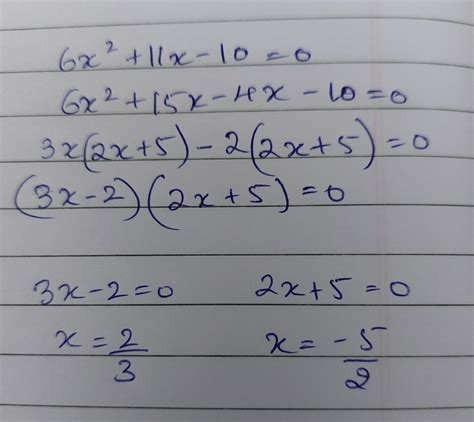 6x² + 11x - 10 = 0
6x² + 15x - 4x - 10 = 0
3x(2x+5) - 2(2x+5) = 0
(3x-2)(2x+5) = 0
3x-2=0 2x+5=0
x = 2/3 x = -5/2